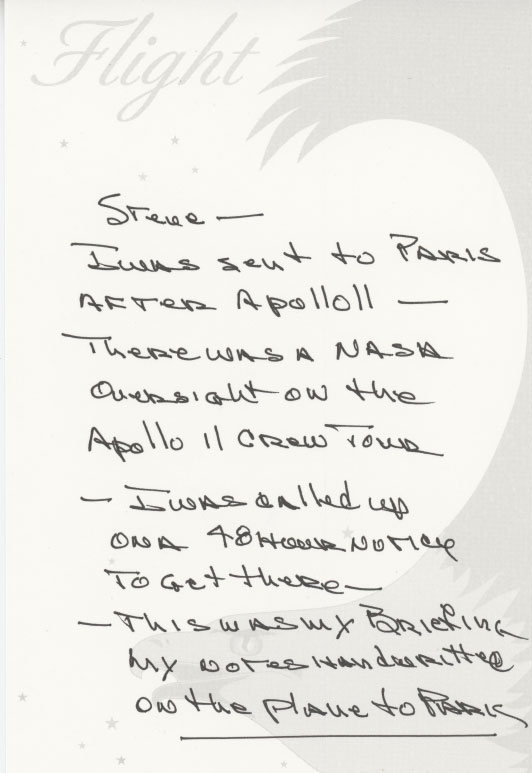 Flight
Steve —
I was sent to Paris
after Apollo 11 —
There was a NASA
oversight on the
Apollo 11 crew tour
— I was called up
on a 48 hour notice
to get there —
— This was my Briefing
my notes handwritten
on the plane to Paris